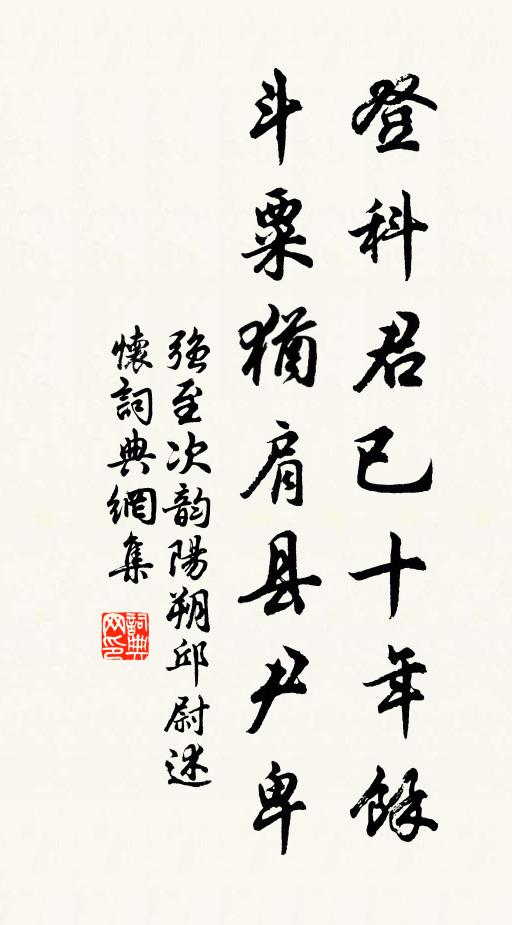 登科君已十年餘
斗粟猶肩县尹卑
強至次韵陽朔邱尉述
懷詞典網集
詞典
网印